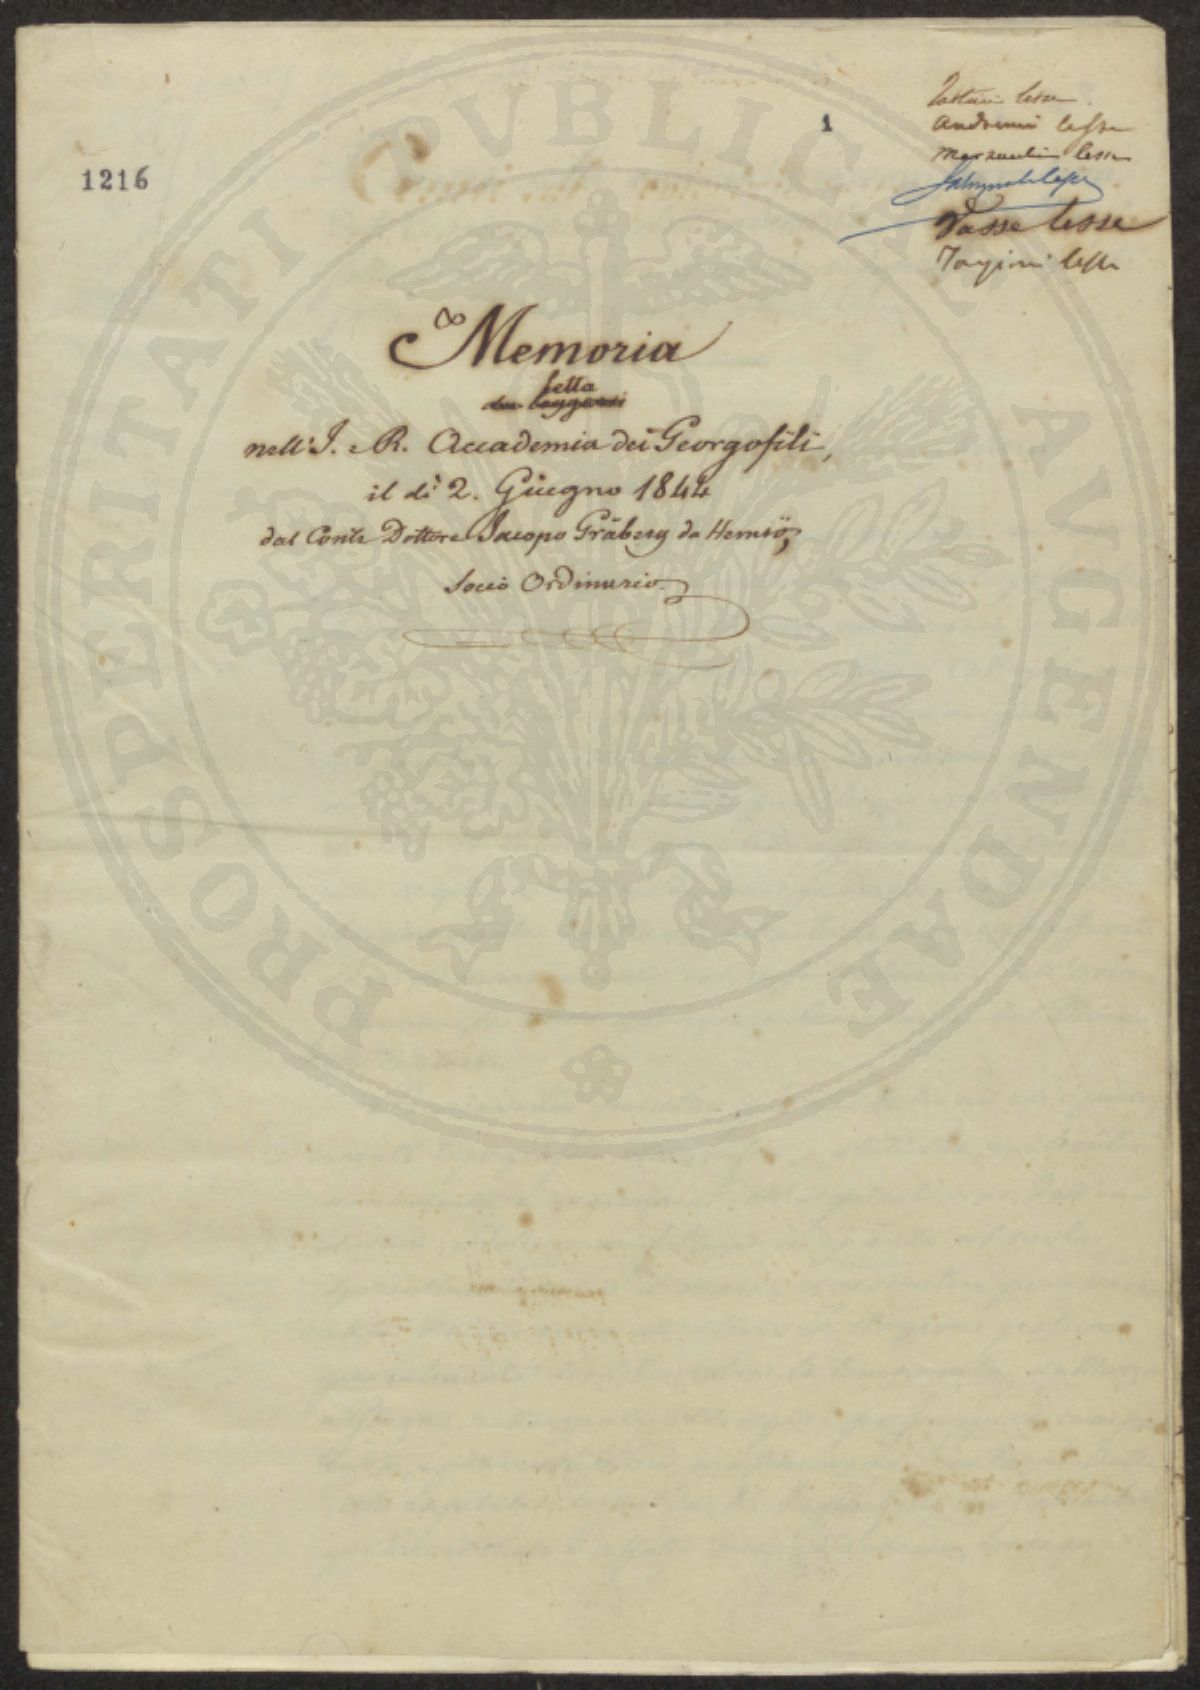 1216
1
lesse
Andreucci lesse
Marzucchi lesse
Tasse lesse
Targioni lesse
Memoria
letta
da leggersi
nell'I. e R. Accademia dei Georgofili,
il dì 2. Giugno 1844
dal Conte Dottore Jacopo Gräberg da Hemsö,
Socio Ordinario.
PROSPERITATI PVBLICAE AVGENDAE